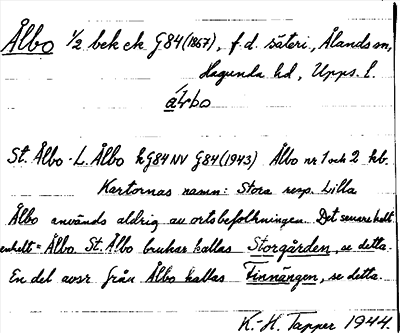 Ålbo ½ bek ek G84 (1867), f.d. säteri, Ålands sn,
Hagunda hd, Upps. l.
ålbo
St. Ålbo - L. Ålbo k G84 NV G84 (1943) Ålbo nr 1 och 2 kb.
Kartornas namn: Stora resp. Lilla
Ålbo används aldrig av ortsbefolkningen. Det senare helt
enkelt = Ålbo. St. Ålbo brukar kallas Storgården, se detta.
En del avsr från Ålbo kallas Finnängen, se detta.
K.-H. Tapper 1944.